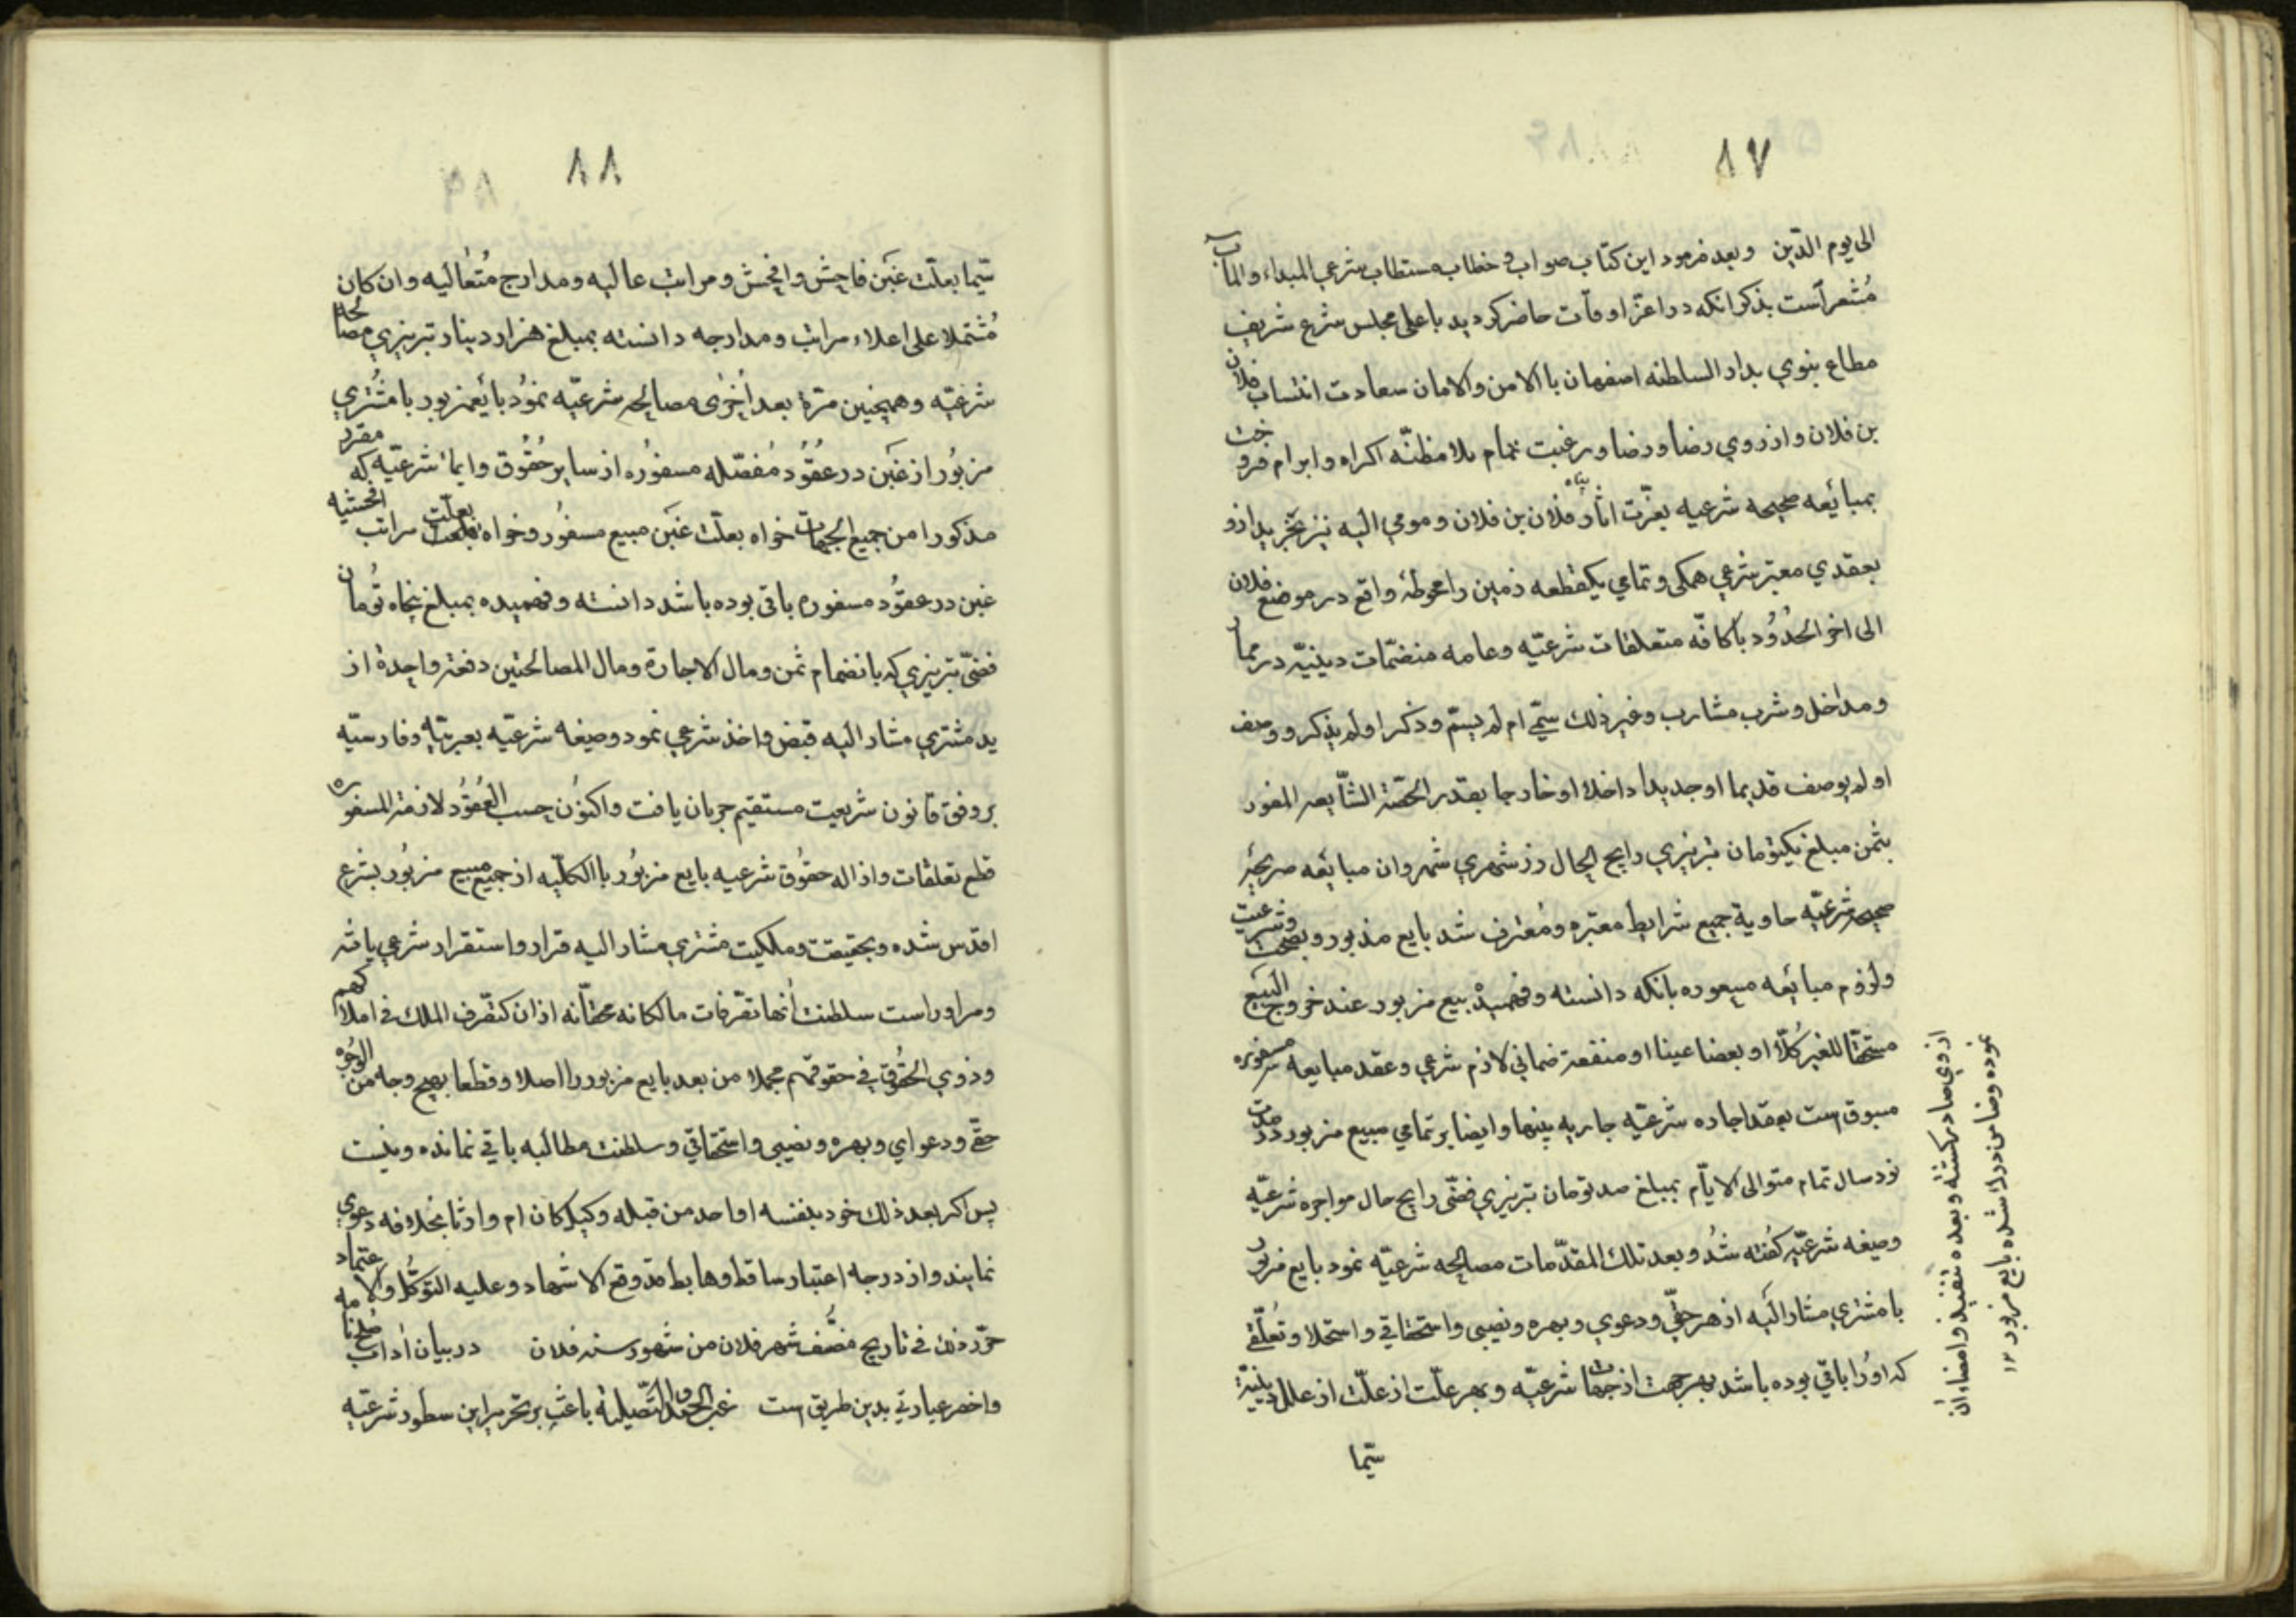 ٨٧
الى يوم الدّين وبعد فرمود اين كتاب صواب و خطاب مستطاب شرعي المبداء والمآب
مُشعر است بذكر انكه در اعزّ اوقات حاضر كرديد باعلى مجلس شرع شريف
مطاع بنوي بدار السلطنه اصفهان با الامن والامان سعادت انتساب فلان
بن فلان و از روي رضا و رضا و رغبت تمام بلا مظنّه اكراه و ابرام فروخت
بمبائعه صحيحه شرعيه بعزّت اثار فلان بن فلان و مومي اليه نيز بخريد ازو
بعقدي معتبر شرعي همكى و تمامي يكقطعه زمين را محوطهٔ واقع در موضع فلان
الى اخر الحُدُود با كافّه متعلقات شرعيّه وعامه منضمّات دينيّه در ممار
و مداخل و شرب مشارب وغير ذلك سمّي ام لم يسمّ وذكر او لم يذكر ووصف
او لم يوصف قديما او جديدا داخلا او خارجا بقدر الحصّة الشّايعه المفور
بثمن مبلغ يكتومان تبريزي رايج الحال رز شهري شهروان مبايعه صريحهٔ
صحيحه شرعيّه حاوية جميع شرايط معتبره ومُعترف شد بايع مذبور و بصحت وشرعيت
ولزوم مبائعه مسعوره بانكه دانسته و فهميدْ بيع مزبور عند خروج البَيع
مستحقّا للغير كُلّا او بعضا عينا او منفعة ضماني لازم شرعي وعقد مبايعه مسفوره
مسبوق است بعقد اجاده شرعيّه جاريه بينهما و ايضا بر تمامي مبيع مزبور در مدت
نود سال تمام متوالى الايّام بمبلغ صد تومان تبريزي فضّى رايج حال مواجره شرعيّه
وصيغه شرعيّه كفته شُد و بعد تلك المقدّمات مصالحه شرعيّه نمود بايع مزبور
با مشتري مشار اليه از هر حقّي و دعوي و بهره و نصيبى و استحقاقي و استحلا و تعلّقي
كه او را باقي بوده باشد بهر جهت از جهات شرعيّه و بهر علّت از علّت از علل دينيّهٔ
سيّما
از وي صادر كشته و بعده تنفيذ و امضاء ان
نموده و ضامن درك شده بايع مزبور ١٢
٨٨
سيّما بعلّت غبَن فاحِش و افحَش و مراتب عاليه ومدارج مُتعٰاليه وان كان
مُشتملا على اعلاء مراتب ومدارجه دانسته بمبلغ هزار دينار تبريزي مصالحه
شرعيّه و همچنين مرّة بعد اُخرٰى مصالحه شرعيّه نموُد بايع مزبور با مشُتري
مزبُور از غبَن در عُقُود مُفصّله مسفوُره از ساير حُقوُق وايمان شرعيّه كه مقرر
مذكور را من جميع الجهات خواه بعلّت غبَن مبيع مسفُور و خواه بعلّت مراتب افحشيه
غبن در عقوُد مسفوره باقى بوده باشد دانسته و فهميده بمبلغ پنجاه توُمان
فضىّ تبريزي كه بانضمام ثمن ومال الاجارة ومال المصالحتين دفعة واحدة از
يد مشتري مشار اليه قبض و اخذ شرعي نمود وصيغه شرعيّه بعربيّه و فارسيّه
بر وفق قانون شريعت مستقيم جريان يافت و اكنوُن حسب العُقُود لازمة المسفوره
قطع تعلقات و ازاله حقوُق شرعيه بايع مزبُور با الكلّيه از جميع مبيع مزبُور بشرع
اقدس شده و بحقيقت وملكيت مشتري مشار اليه قرار و استقرار شرعي يافته
و مر او راست سلطنت اُنها تصّرفات مالكانه محقّانه از ان كتصّرف الملاك فے املاكهم
وذوي الحقُوق في حقوقهم مجملا من بعد بايع مزبور را اصلا وقطعا بهيچ وجه من الوجُوه
حقّے و دعواي و بهره و نصيبى و استحقاقي و سلطنت مطالبه باقي نمانده و نيست
پس اكر بعد ذلك خود بنفسه او احد من قبله وكيلا كان ام وارثا بخلافه دعوي
نمايند و از درجه اعتبار ساقط وهابط قد وقع الاشهاد وعليه التوكّل والاعتماد
حرّر ذلك فے تاريخ منصّف شهر فلان من شهور سنه فلان در بيان اداب صلح نامه
و اخصر عباراتي بدين طريق است غبّ الحمد و التصّلية باعَث بر تحرير اين سطُور شرعيّه